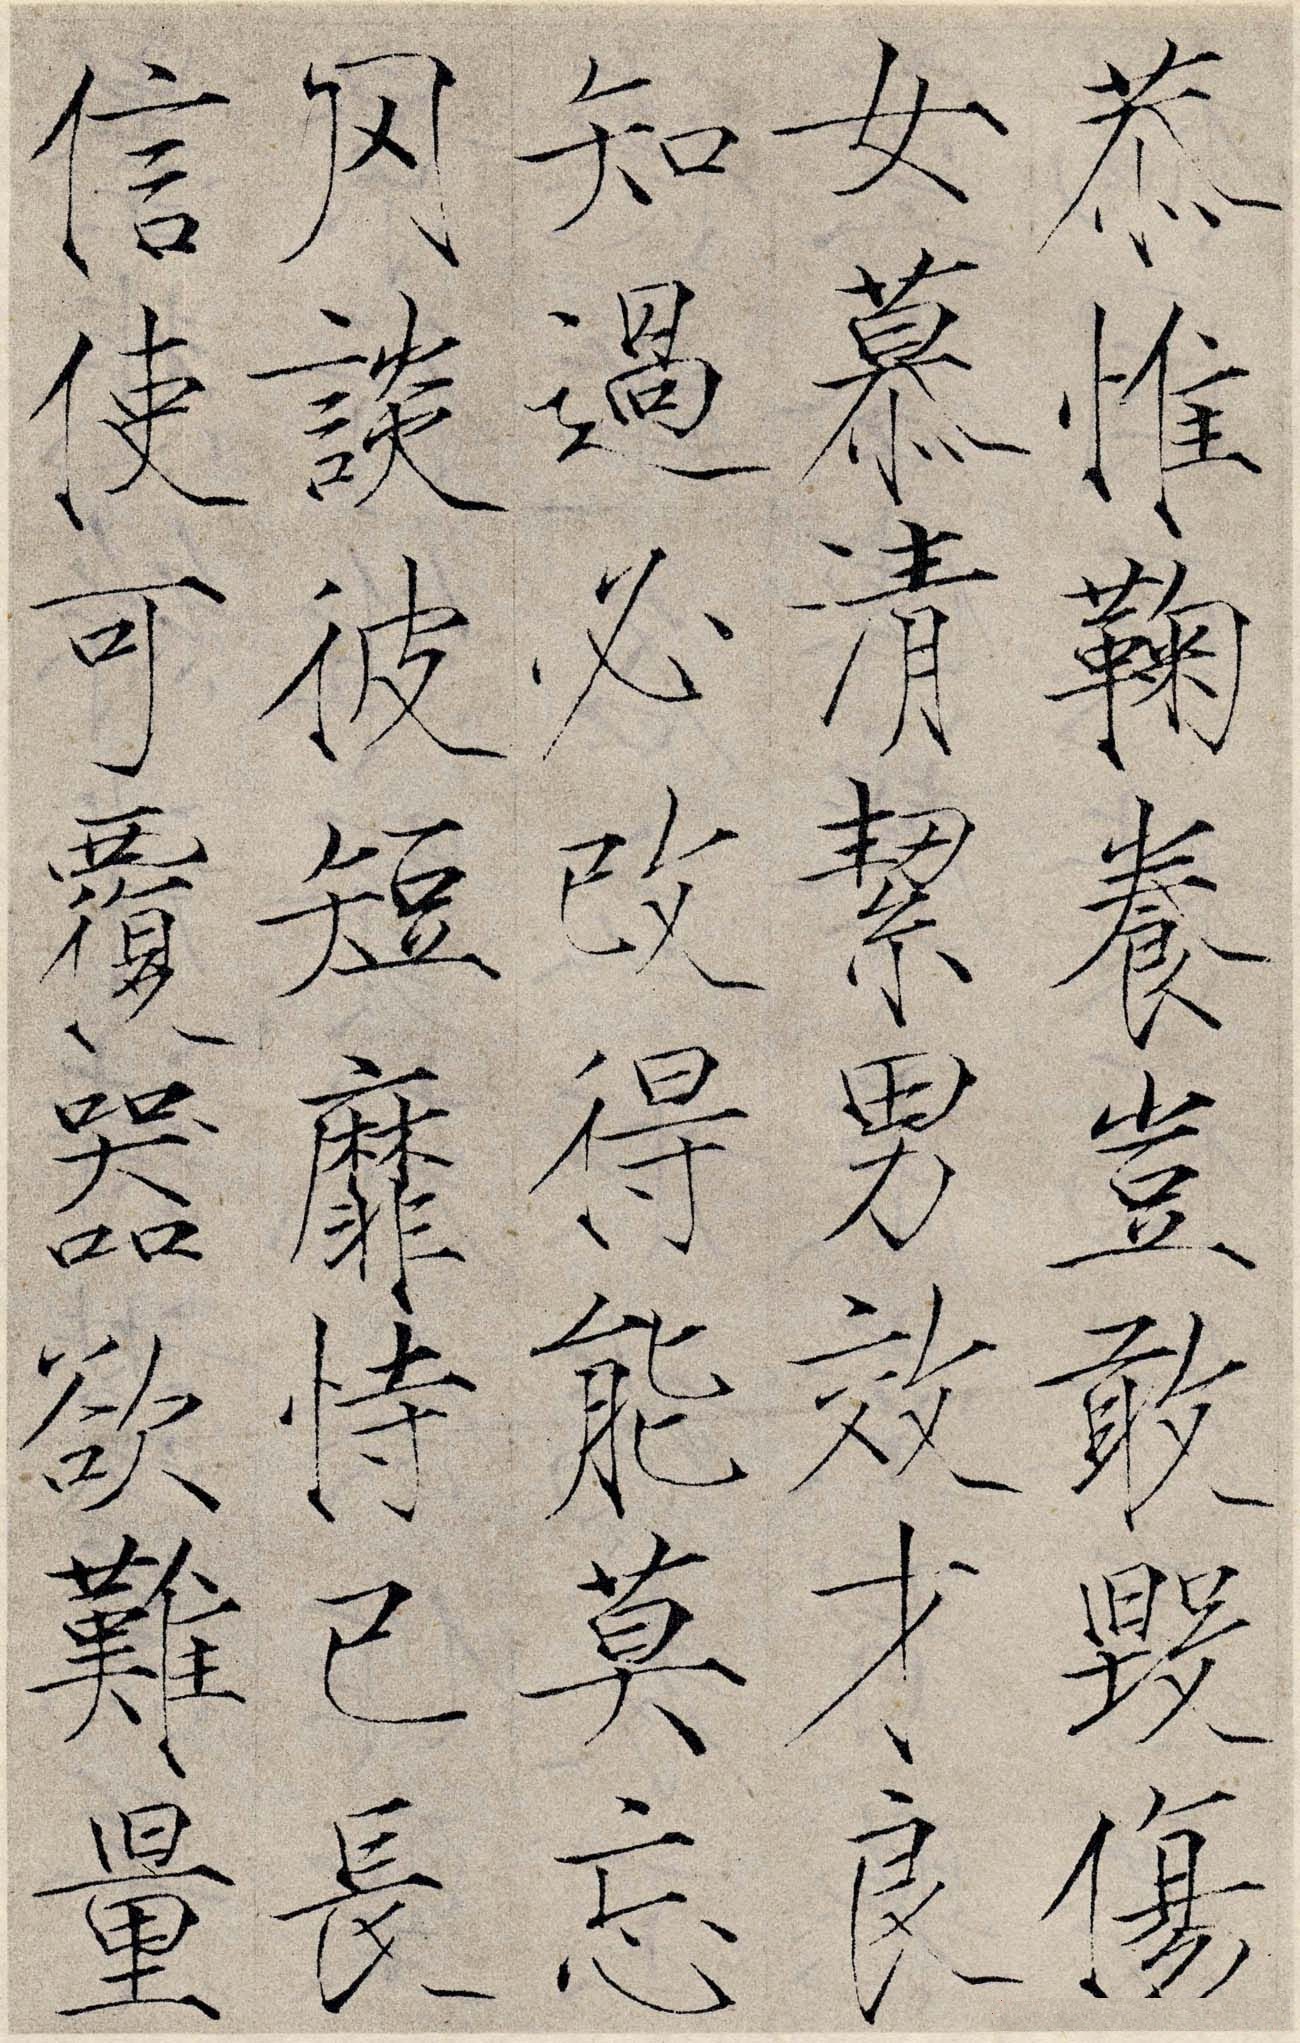 恭惟鞠養豈敢毀傷
女慕清絜男效才良
知過必改得能莫忘
罔談彼短靡恃己長
信使可覆器欲難量